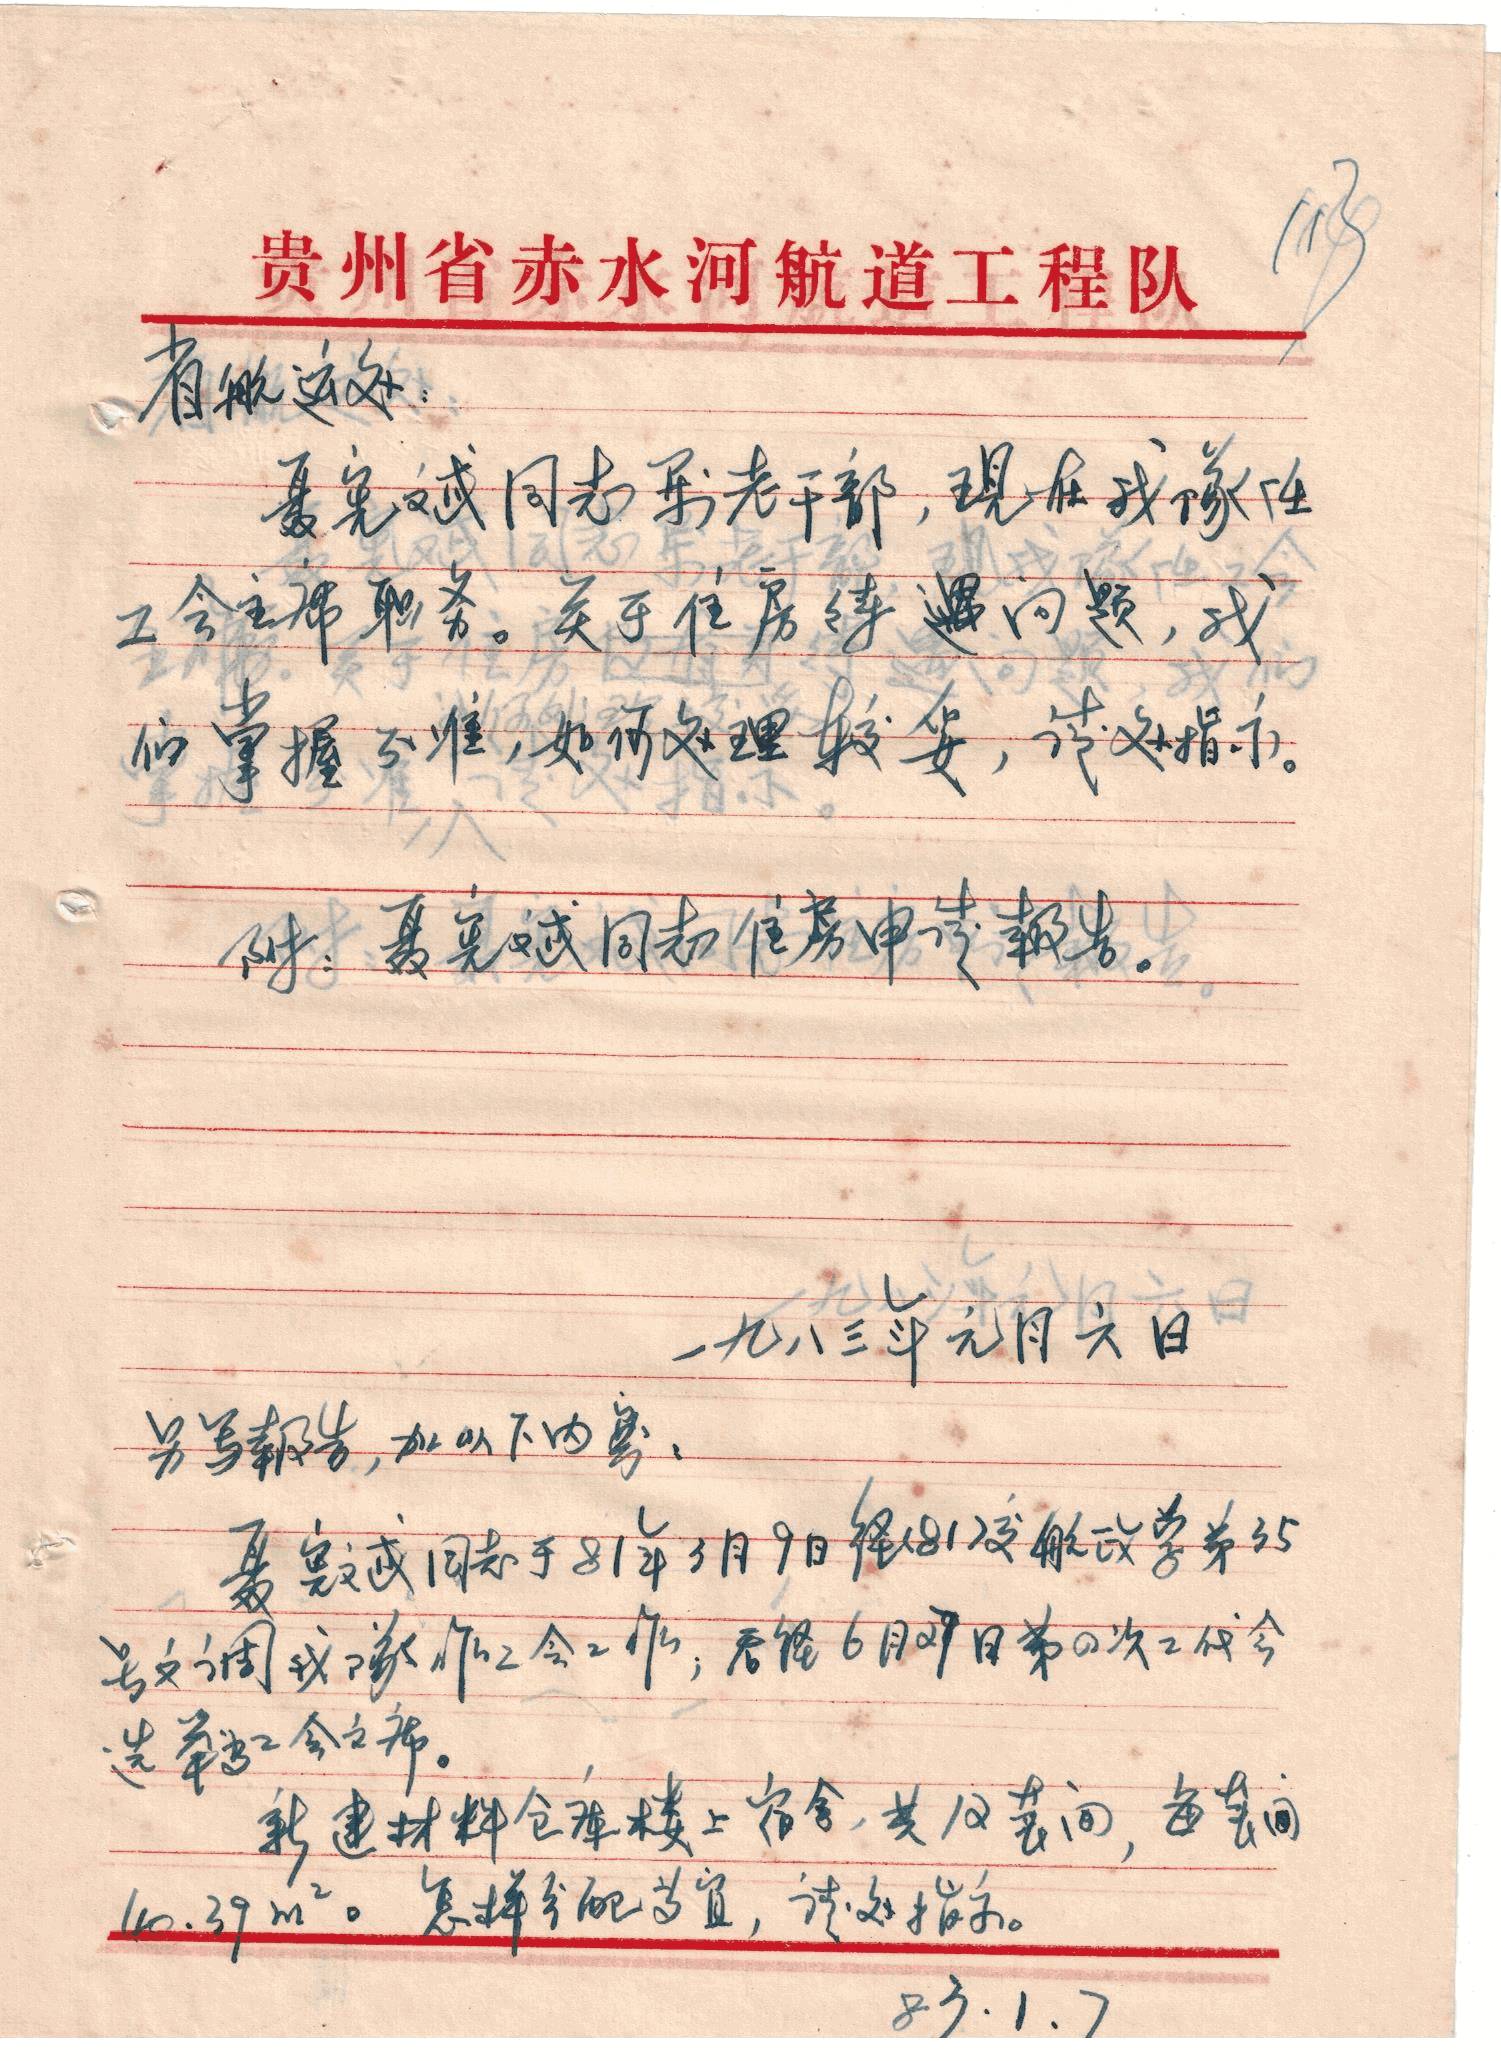 113
贵州省赤水河航道工程队
省航运处：
聂宪斌同志系老干部，现在我隊任
工会主席职务。关于住房待遇问题，我
们掌握不准，如何处理较妥，请处指示。
附：聂宪斌同志住房申请報告。
一九八三年元月六日
另写報告，加以下内容：
聂宪斌同志于81年3月9日经(81)交航政字第35
号文调我隊作工会工作；后经6月27日第四次工代会
选举为工会主席。
新建材料仓库楼上宿舍，共八套间，每套间
.39m²。怎样分配为宜，请处指示。
83.1.7